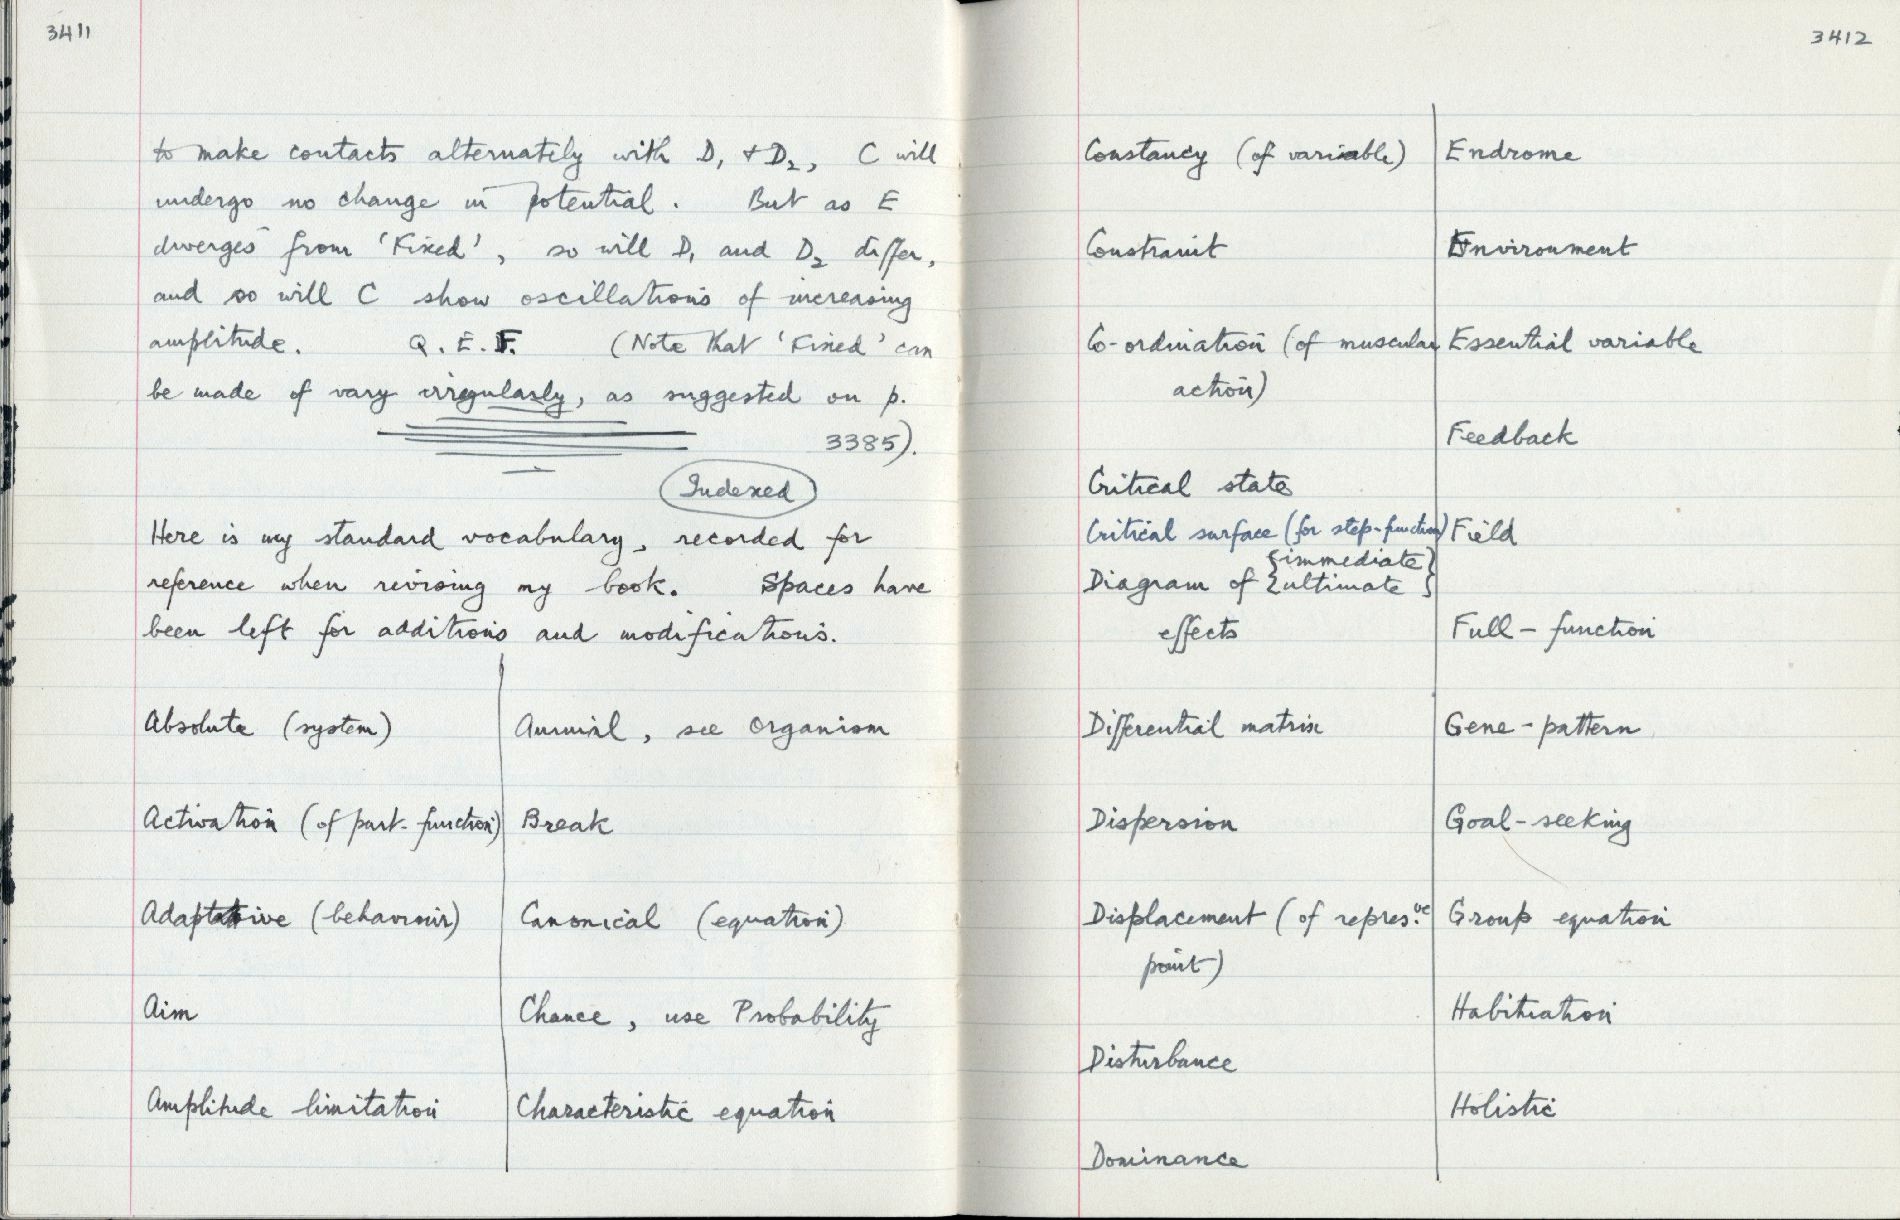 3411
to make contacts alternately with D₁ + D₂, C will
undergo no change in potential. But as E
diverges from 'Fixed', so will D₁ and D₂ differ,
and so will C show oscillations of increasing
amplitude. Q.E.F. (Note that 'Fixed' can
be made of vary irregularly, as suggested on p.
3385).
Indexed
Here is my standard vocabulary, recorded for
reference when revising my book. Spaces have
been left for additions and modifications.
Absolute (system)
Activation (of part-function)
Adaptive (behaviour)
Aim
Amplitude limitation
Animal, see Organism
Break
Canonical (equation)
Chance, use Probability
Characteristic equation
3412
Constancy (of variable)
Constraint
Co-ordination (of muscular
action)
Critical state
Critical surface (for step-function)
{immediate}
Diagram of {ultimate}
effects
Differential matrix
Dispersion
Displacement (of repres.ve
point)
Disturbance
Dominance
Endrome
Environment
Essential variable
Feedback
Field
Full-function
Gene-pattern
Goal-seeking
Group equation
Habituation
Holistic